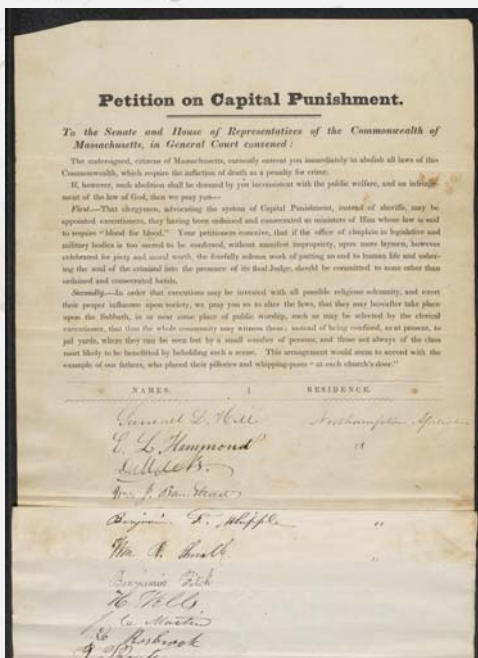 Petition on Capital Punishment.
To the Senate and House of Representatives of the Commonwealth of
Massachusetts, in General Court convened:
The undersigned, citizens of Massachusetts, earnestly entreat you immediately to abolish all laws of this
Commonwealth, which require the infliction of death as a penalty for crime.
If, however, such abolition shall be deemed by you inconsistent with the public welfare, and an infringe-
ment of the law of God, then we pray you—
First.—That clergymen, advocating the system of Capital Punishment, instead of sheriffs, may be
appointed executioners, they having been ordained and consecrated as ministers of Him whose law is said
to require "blood for blood." Your petitioners conceive, that if the office of chaplain in legislative and
military bodies is too sacred to be conferred, without manifest impropriety, upon mere laymen, however
celebrated for piety and moral worth, the fearfully solemn work of putting an end to human life and usher-
ing the soul of the criminal into the presence of its final Judge, should be committed to none other than
ordained and consecrated hands.
Secondly.—In order that executions may be invested with all possible religious solemnity, and exert
their proper influence upon society, we pray you so to alter the laws, that they may hereafter take place
upon the Sabbath, in or near some place of public worship, such as may be selected by the clerical
executioner, that thus the whole community may witness them, instead of being confined, as at present, to
jail yards, where they can be seen but by a small number of persons, and those not always of the class
most likely to be benefitted by beholding such a scene. This arrangement would seem to accord with the
example of our fathers, who placed their pillories and whipping-posts "at each church's door."
NAMES. RESIDENCE.
Samuel L. Hill Northampton
E. L. Hammond "
J.
Benjamin F. Whipple "
Wm "
Benjamin Fitch
H Wells
Martin
Rosbrook